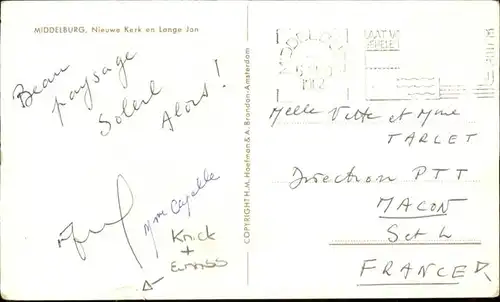 MIDDELBURG, Nieuwe Kerk en Lange Jan
Beau
paysage
Soleil
Alors!
Mme Capelle
Knick
+
COPYRIGHT H.M. Hoetman & A. Brandon-Amsterdam
MIDDELBURG
Melle Vitte et Mme
TARLET
Direction PTT
MACON
S et L
FRANCE